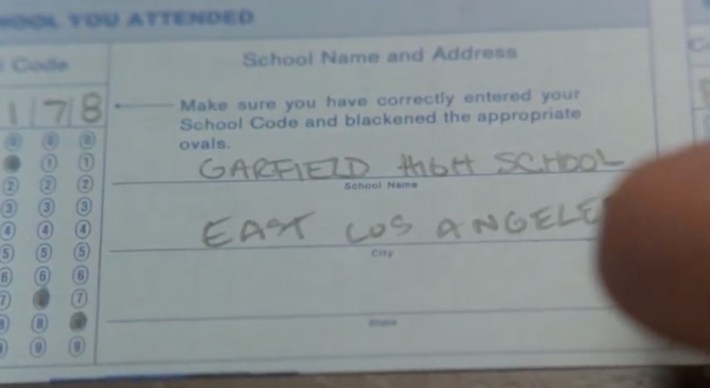 HOOL YOU ATTENDED
Code
School Name and Address
1 7 8
Make sure you have correctly entered your
School Code and blackened the appropriate
ovals.
GARFIELD HIGH SCHOOL
School Name
EAST LOS ANGELE
City
State
0 0 0
1 1
2 2 2
3 3 3
4 4 4
5 5 5
6 6 6
7 7
8 8
9 9 9